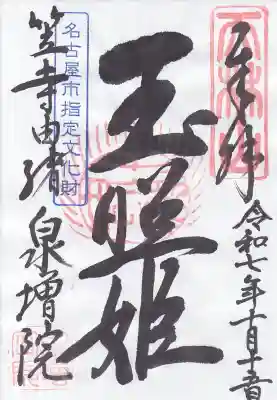 奉拝
令和七年十月十五日
玉照姫
名古屋市指定文化財
笠寺由緒 泉増院